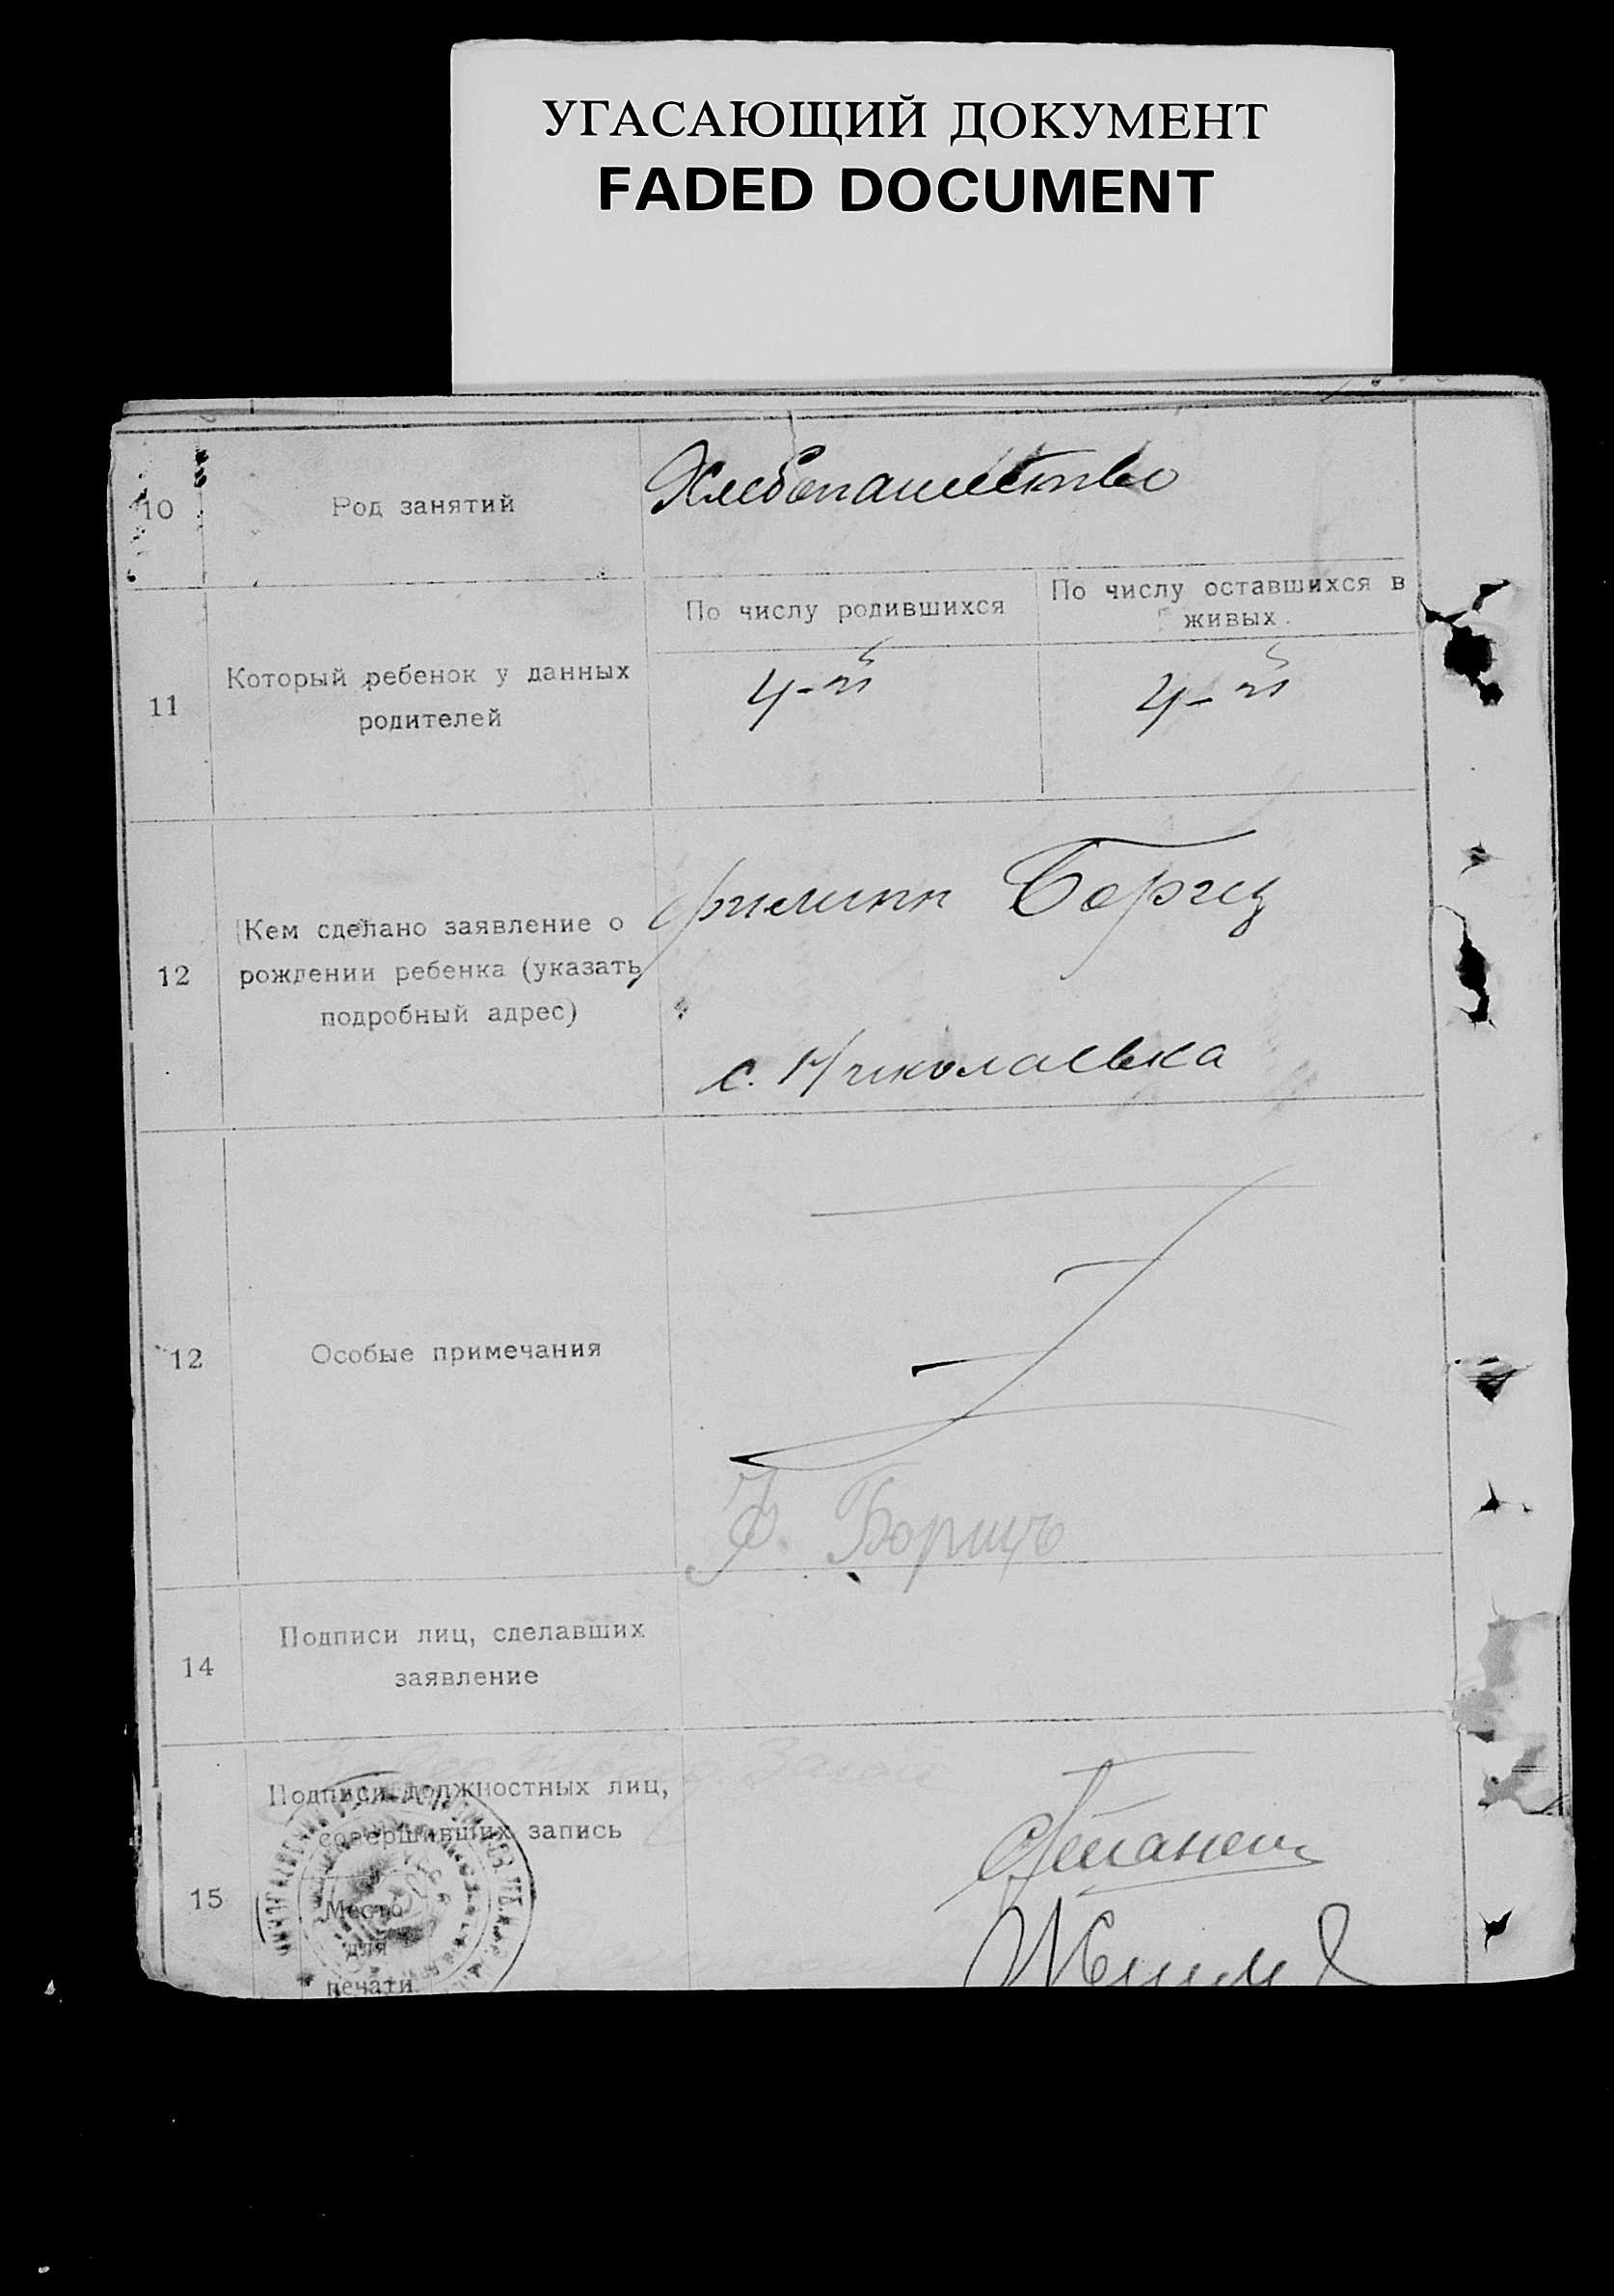 УГАСАЮЩИЙ ДОКУМЕНТ
FADED DOCUMENT
10
Род занятий
Хлебопашество
11
Который ребенок у данных
родителей
По числу родившихся
4-й
По числу оставшихся в
живых.
4-й
12
Кем сделано заявление о
рождении ребенка (указать
подробный адрес)
Филипп
с. Николаевка
12
Особые примечания
Ф. Борщъ
14
Подписи лиц, сделавших
заявление
15
Подписи должностных лиц,
совершивших запись
Место
для
печати